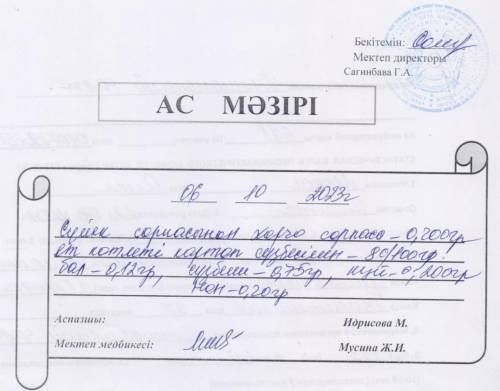 Бекітемін:
Мектеп директоры
Сагинбава Г.А.
АС МӘЗІРІ
06 10 2023г
Сүйек сорпасынан харчо сорпасы – 0,200гр
ет котлеті картоп езбесімен – 80/100гр
бал – 0,12гр, – 0,75гр, – 0,200гр
Нан – 0,20гр
Аспазшы: Идрисова М.
Мектеп медбикесі: Мусина Ж.И.